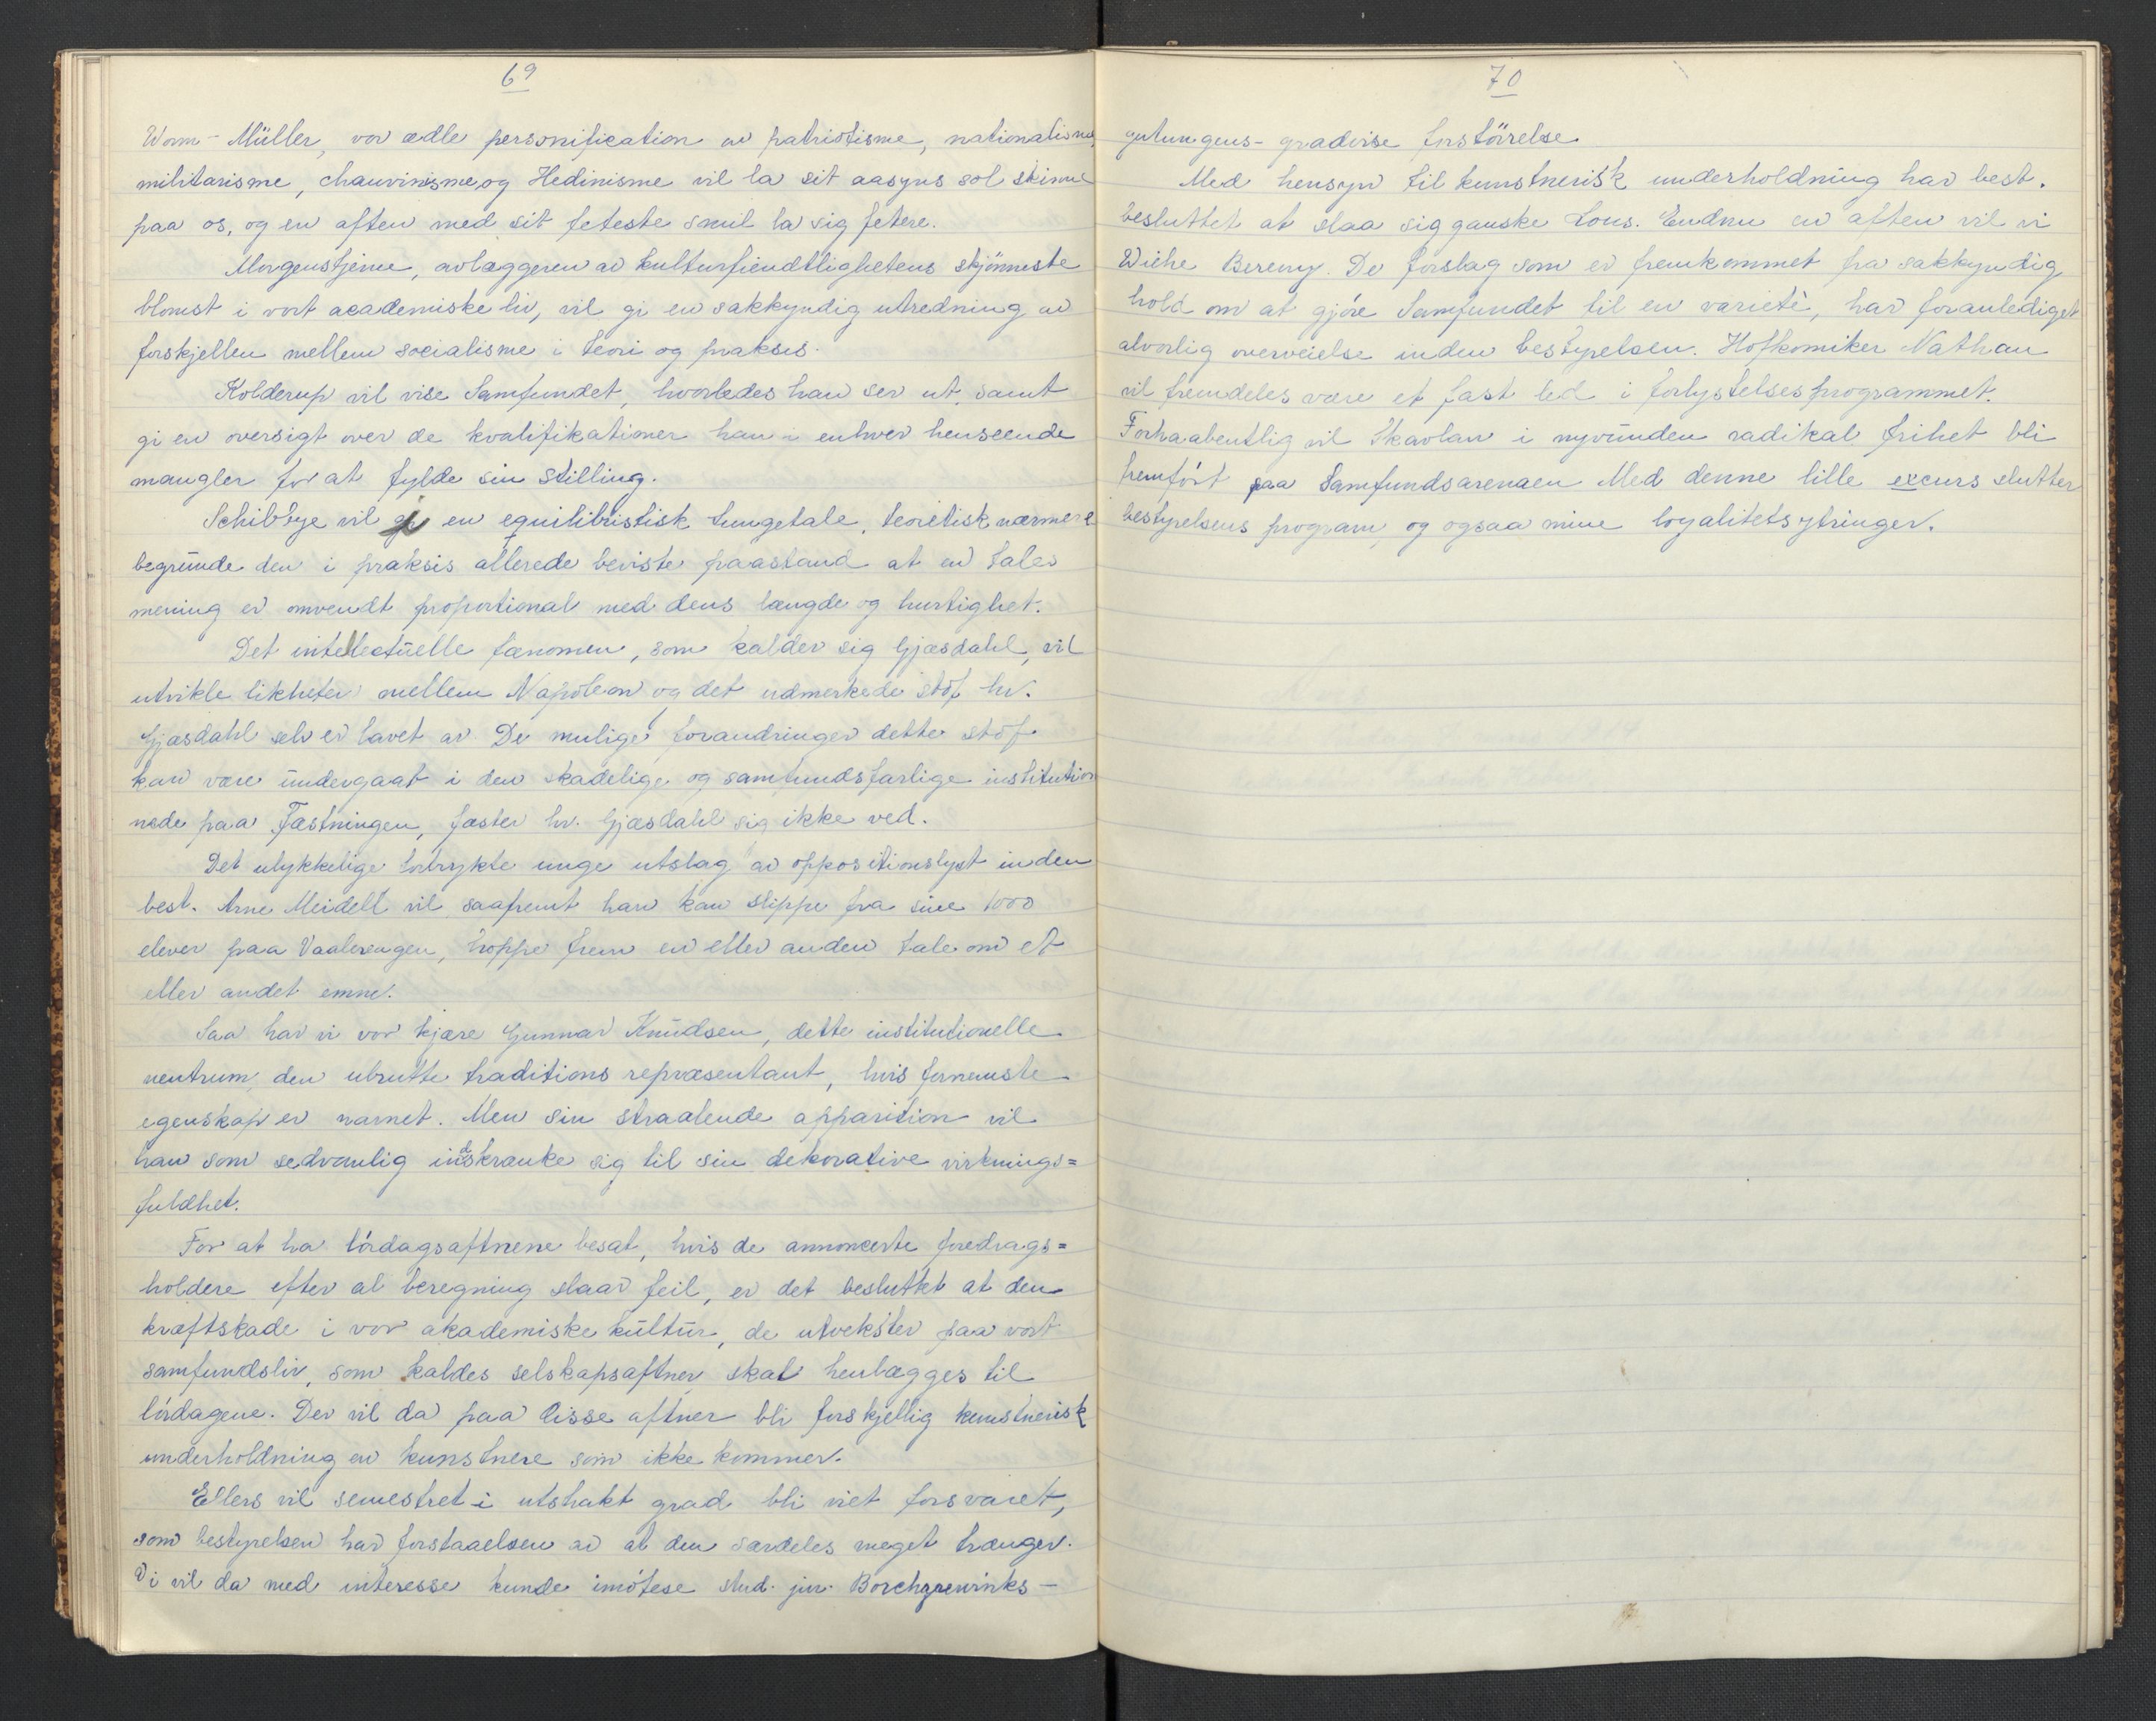 69
Worm-Müller, vor ædle personification av patriotisme, nationalisme
militarisme, chauvinisme og Hedinisme vil la sit aasyns sol skinne
paa os, og en aften med sit feteste smil la sig fetere.
Morgenstjerne, avlæggeren av kulturfiendtlighetens skjønneste
blomst i vort academiske liv, vil gi en sakkyndig utredning av
forskjellen mellem socialisme i teori og praksis.
Kolderup vil vise Samfundet, hvorledes han ser ut, samt
gi en oversigt over de kvalifikationer han i enhver henseende
mangler for at fylde sin stilling.
Schibbye vil gi en equilibristisk tungetale, teoretisk nærmere
begrunde den i praksis allerede beviste paastand at en tales
mening er omvendt proportional med dens længde og hurtighet.
Det intellectuelle fænomen, som kalder sig Gjæsdahl, vil
utvikle likheten mellem Napoleon og det udmerkede stöf hr.
Gjæsdahl selv er lavet av. De mulige forandringer dette stöf
kan være undergaat i den skadelige og samfundsfarlige institution
nede paa Fæstningen, fæster hr. Gjæsdahl sig ikke ved.
Det ulykkelige fortrykte unge utslag av oppositionslyst inden
best. Arne Meidell vil saafremt han kan slippe fra sine 1000
elever paa Vaalerengen, hoppe frem en eller anden tale om et
eller andet emne.
Saa har vi vor kjære Gunnar Knudsen, dette institutionelle
neutrum, den ubrutte traditions repræsentant, hvis fornemste
egenskap er navnet. Men sin straalende apparition vil
han som sedvanlig indskrænke sig til sin dekorative virknings=
fuldhet.
For at ha lördagsaftnene besat, hvis de annoncerte foredrags=
holdere efter al beregning slaar feil, er det besluttet at den
kræftskade i vor akademiske kultur, de utvekster paa vort
samfundsliv, som kaldes selskapsaftner skal henlægges til
lördagene. Der vil da paa disse aftner bli forskjellig kunstnerisk
underholdning av kunstnere som ikke kommer.
Ellers vil semestret i utstrakt grad bli viet forsvaret,
som bestyrelsen har forstaaelsen av at den særdeles meget trænger.
Vi vil da med interesse kunde imötese stud. jur. Borchgrevinks-
70
gutungens- gradvise forstörrelse
Med hensyn til kunstnerisk underholdning har best.
besluttet at slaa sig ganske lous. Endnu en aften vil vi
Wiehe Bereny. De forslag som er fremkommet fra sakkyndig
hold om at gjöre Samfundet til en varietè, har foranlediget
alvorlig overveielse inden bestyrelsen. Hofkomiker Nathan
vil fremdeles være et fast led i forlystelsesprogrammet.
Forhaabentlig vil Skavlan i nyvunden radikal frihet bli
fremfört paa Samfundsarenaen Med denne lille excurs slutter
bestyrelsens program, og ogsaa mine loyalitetsytringer.